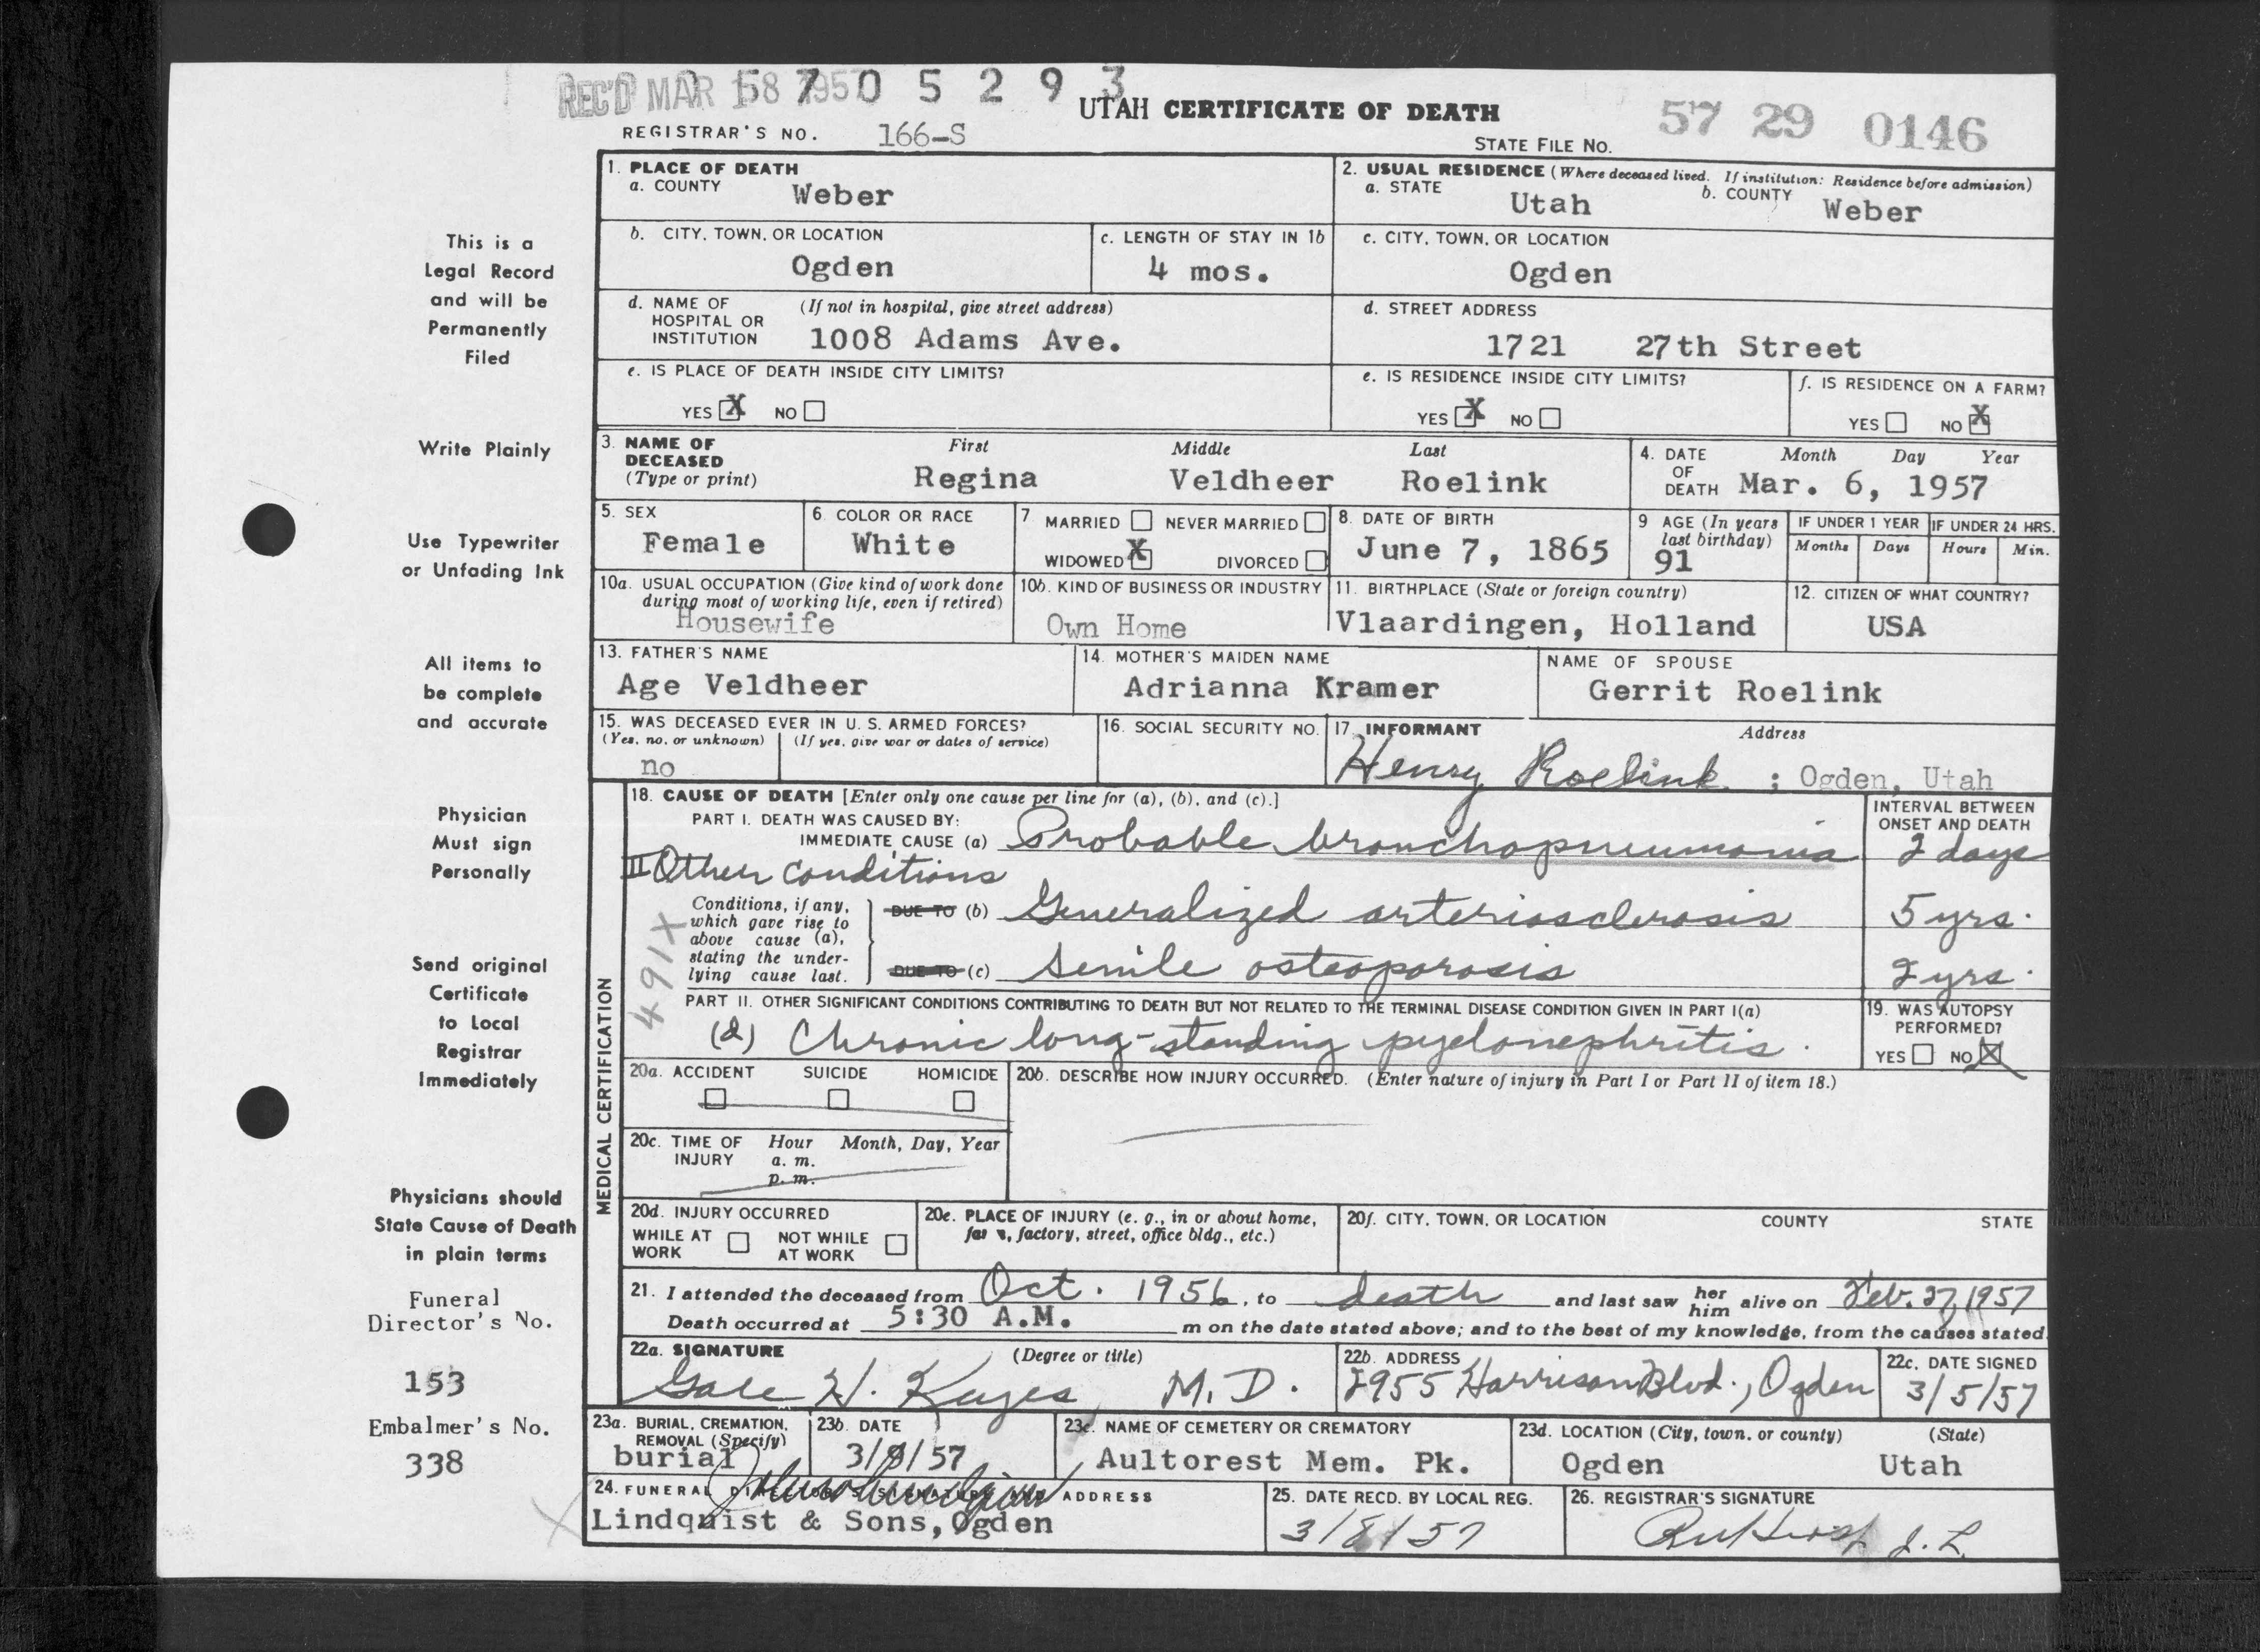 REC'D MAR 18 1957
57 0 5 2 9 3
UTAH CERTIFICATE OF DEATH
57 29 0146
REGISTRAR'S NO. 166-S
STATE FILE NO.
This is a
Legal Record
and will be
Permanently
Filed
Write Plainly
Use Typewriter
or Unfading Ink
All items to
be complete
and accurate
Physician
Must sign
Personally
Send original
Certificate
to Local
Registrar
Immediately
Physicians should
State Cause of Death
in plain terms
Funeral
Director's No.
153
Embalmer's No.
338
1. PLACE OF DEATH
a. COUNTY Weber
2. USUAL RESIDENCE (Where deceased lived. If institution: Residence before admission)
a. STATE Utah b. COUNTY Weber
b. CITY, TOWN, OR LOCATION
Ogden
c. LENGTH OF STAY IN 1b
4 mos.
c. CITY, TOWN, OR LOCATION
Ogden
d. NAME OF HOSPITAL OR INSTITUTION (If not in hospital, give street address)
1008 Adams Ave.
d. STREET ADDRESS
1721 27th Street
e. IS PLACE OF DEATH INSIDE CITY LIMITS?
YES X NO
e. IS RESIDENCE INSIDE CITY LIMITS?
YES X NO
f. IS RESIDENCE ON A FARM?
YES NO X
3. NAME OF DECEASED (Type or print)
First Middle Last
Regina Veldheer Roelink
4. DATE OF DEATH Month Day Year
Mar. 6, 1957
5. SEX
Female
6. COLOR OR RACE
White
7 MARRIED NEVER MARRIED
WIDOWED X DIVORCED
8. DATE OF BIRTH
June 7, 1865
9 AGE (In years last birthday)
91
IF UNDER 1 YEAR
Months Days
IF UNDER 24 HRS.
Hours Min.
10a. USUAL OCCUPATION (Give kind of work done during most of working life, even if retired)
Housewife
10b. KIND OF BUSINESS OR INDUSTRY
Own Home
11. BIRTHPLACE (State or foreign country)
Vlaardingen, Holland
12. CITIZEN OF WHAT COUNTRY?
USA
13. FATHER'S NAME
Age Veldheer
14. MOTHER'S MAIDEN NAME
Adrianna Kramer
NAME OF SPOUSE
Gerrit Roelink
15. WAS DECEASED EVER IN U. S. ARMED FORCES?
(Yes, no, or unknown) (If yes, give war or dates of service)
no
16. SOCIAL SECURITY NO.
17. INFORMANT Address
Henry Roelink ; Ogden, Utah
MEDICAL CERTIFICATION
18. CAUSE OF DEATH [Enter only one cause per line for (a), (b), and (c).]
INTERVAL BETWEEN ONSET AND DEATH
PART I. DEATH WAS CAUSED BY:
IMMEDIATE CAUSE (a) Probable bronchopneumonia 2 days
II Other Conditions
491X
Conditions, if any, which gave rise to above cause (a), stating the underlying cause last.
DUE TO (b) Generalized arteriosclerosis 5 yrs.
DUE TO (c) Senile osteoporosis 2 yrs.
PART II. OTHER SIGNIFICANT CONDITIONS CONTRIBUTING TO DEATH BUT NOT RELATED TO THE TERMINAL DISEASE CONDITION GIVEN IN PART I(a)
(d) Chronic long-standing pyelonephritis.
19. WAS AUTOPSY PERFORMED?
YES NO X
20a. ACCIDENT SUICIDE HOMICIDE
20b. DESCRIBE HOW INJURY OCCURRED. (Enter nature of injury in Part I or Part II of item 18.)
20c. TIME OF INJURY Hour Month, Day, Year
a. m.
p. m.
20d. INJURY OCCURRED
WHILE AT WORK NOT WHILE AT WORK
20e. PLACE OF INJURY (e. g., in or about home, farm, factory, street, office bldg., etc.)
20f. CITY, TOWN, OR LOCATION COUNTY STATE
21. I attended the deceased from Oct. 1956, to death and last saw her him alive on Feb. 27, 1957
Death occurred at 5:30 A.M. m on the date stated above; and to the best of my knowledge, from the causes stated.
22a. SIGNATURE (Degree or title)
Gale H. Keyes M. D.
22b. ADDRESS
2955 Harrison Blvd., Ogden
22c. DATE SIGNED
3/5/57
23a. BURIAL, CREMATION, REMOVAL (Specify)
burial
23b. DATE
3/8/57
23c. NAME OF CEMETERY OR CREMATORY
Aultorest Mem. Pk.
23d. LOCATION (City, town, or county) (State)
Ogden Utah
24. FUNERAL DIRECTOR'S SIGNATURE AND ADDRESS
Lindquist & Sons, Ogden
25. DATE RECD. BY LOCAL REG.
3/8/57
26. REGISTRAR'S SIGNATURE
J. L.